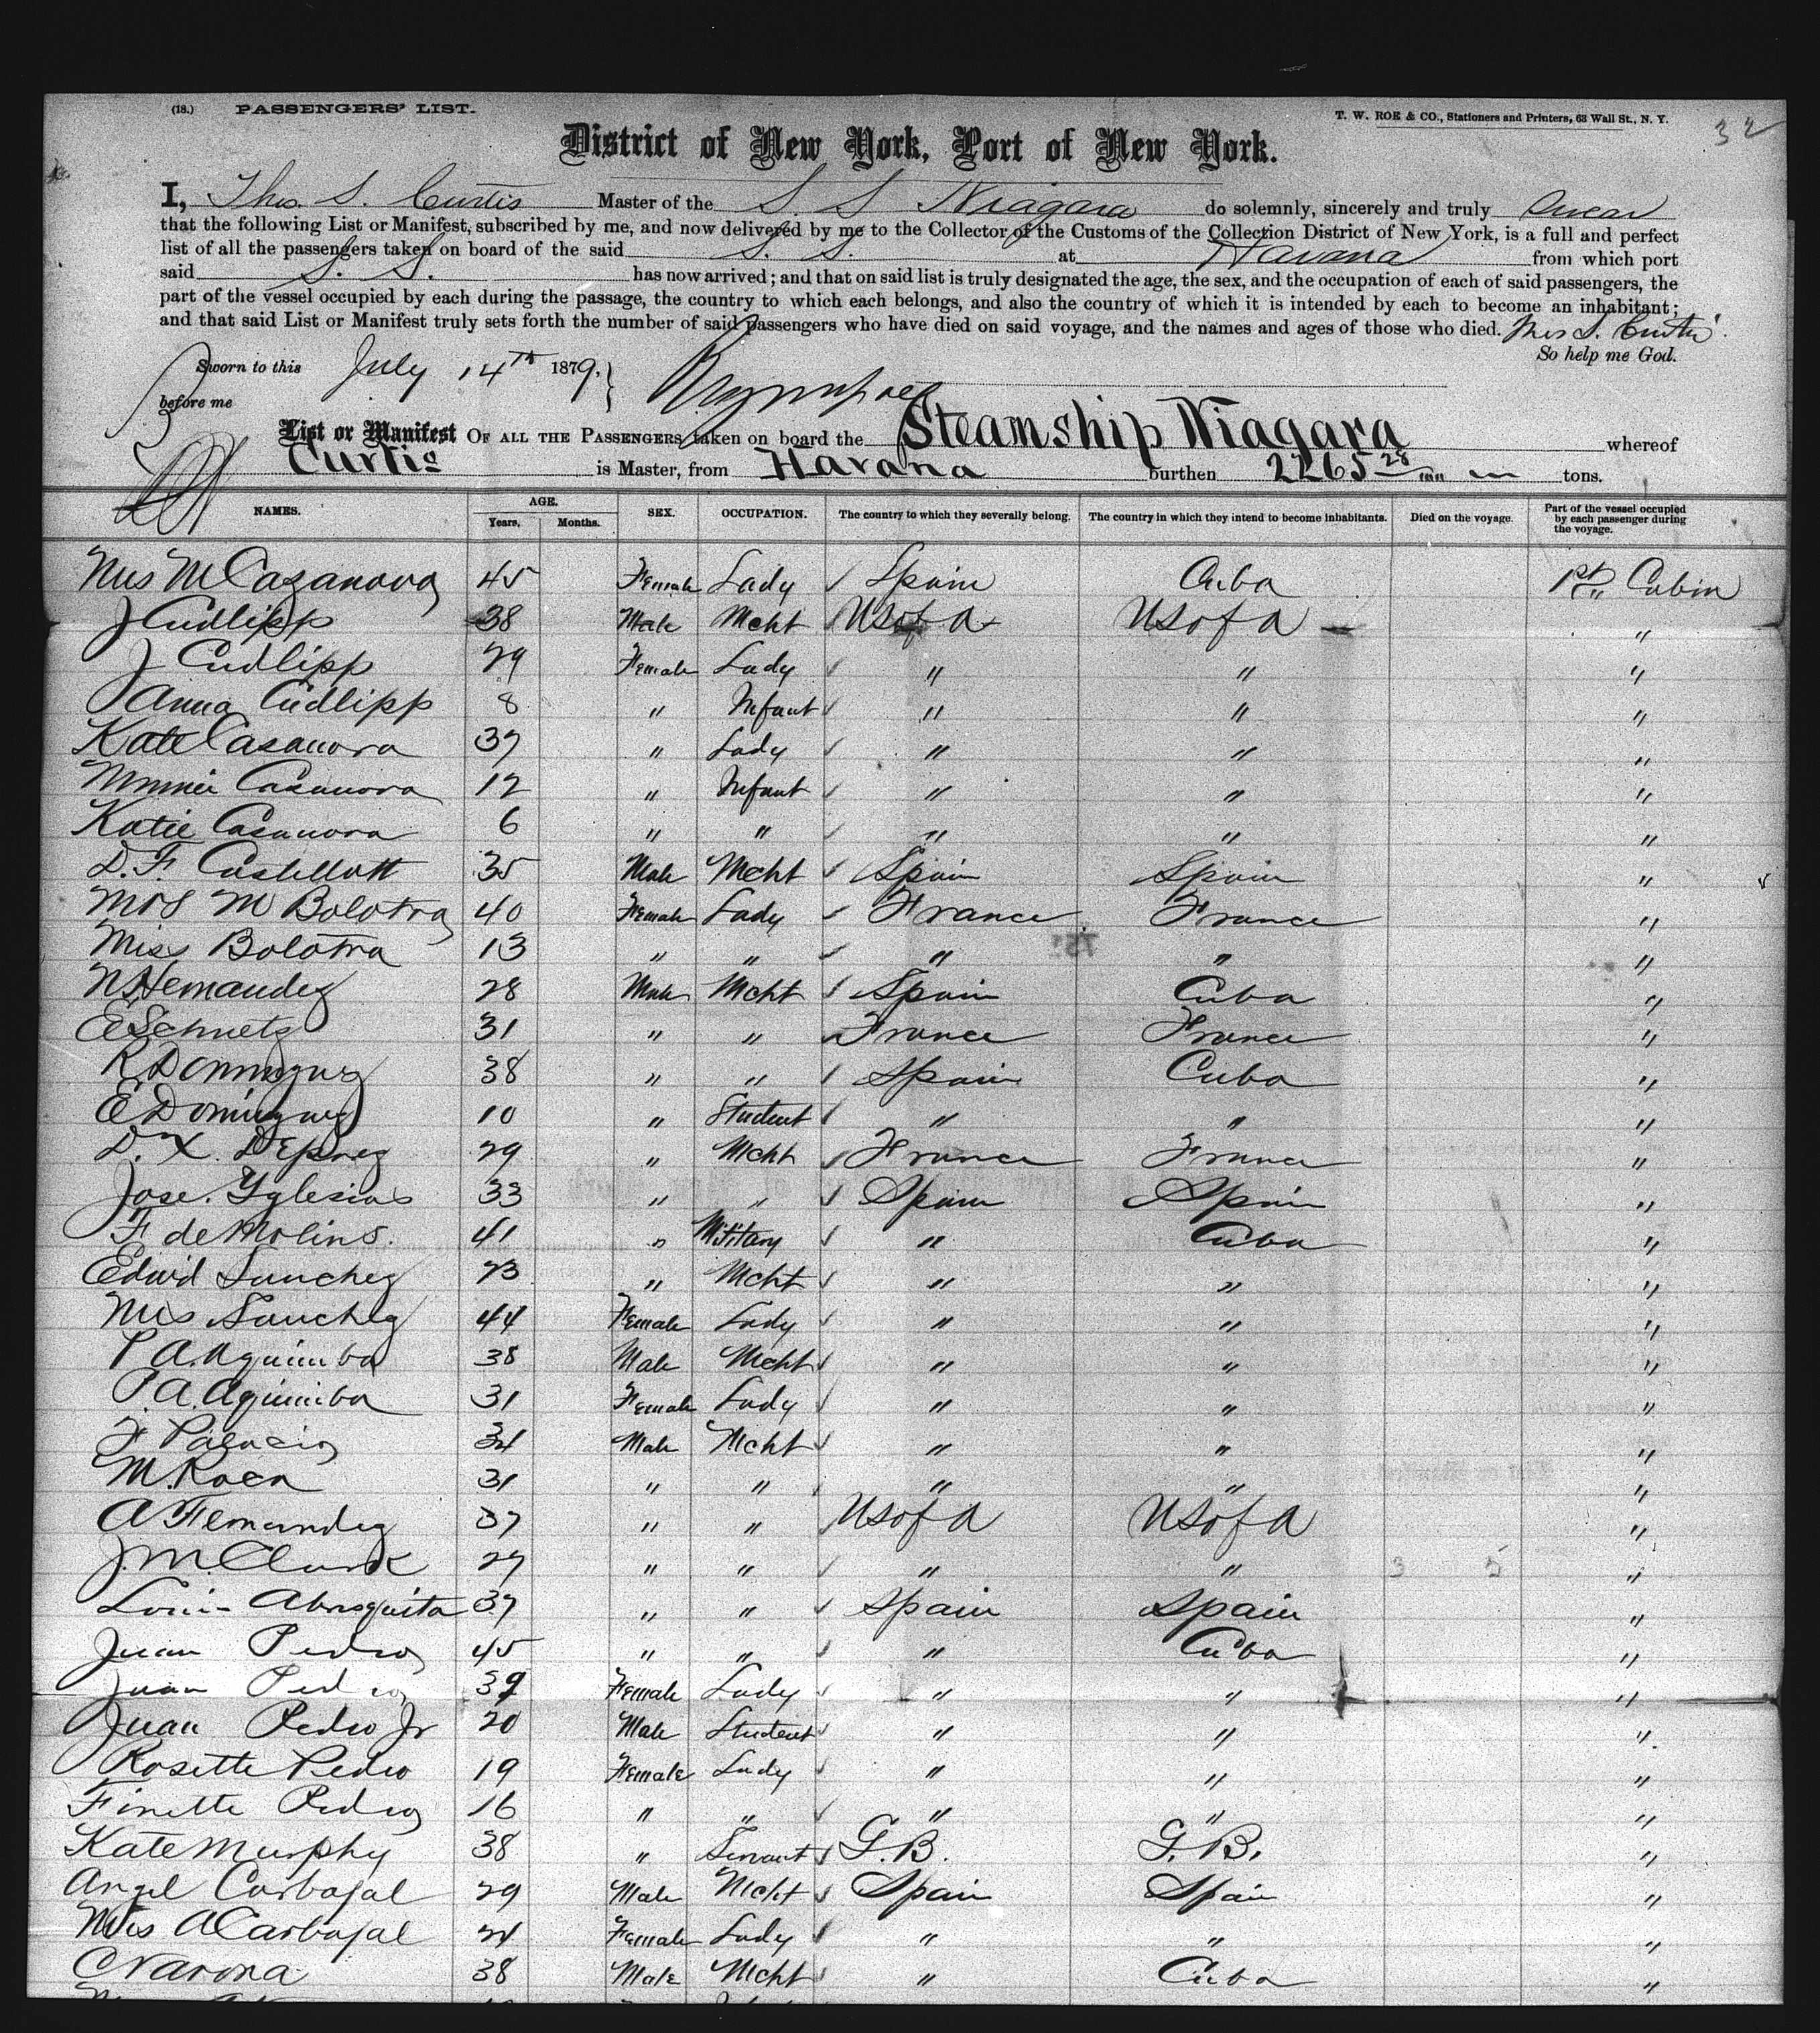 (18.) PASSENGERS' LIST.
T. W. ROE & CO., Stationers and Printers, 63 Wall St., N. Y.
32
District of New York, Port of New York.
I, Thos. S. Curtis Master of the S. S. Niagara do solemnly, sincerely and truly swear
that the following List or Manifest, subscribed by me, and now delivered by me to the Collector of the Customs of the Collection District of New York, is a full and perfect
list of all the passengers taken on board of the said S. S. at Havana from which port
said S. S. has now arrived; and that on said list is truly designated the age, the sex, and the occupation of each of said passengers, the
part of the vessel occupied by each during the passage, the country to which each belongs, and also the country of which it is intended by each to become an inhabitant;
and that said List or Manifest truly sets forth the number of said passengers who have died on said voyage, and the names and ages of those who died. Thos S. Curtis
So help me God.
Sworn to this July 14th 1879,
before me
List or Manifest OF ALL THE PASSENGERS taken on board the Steamship Niagara whereof
Curtis is Master, from Havana burthen 2265 28 tons.
NAMES. AGE. Years. Months. SEX. OCCUPATION. The country to which they severally belong. The country in which they intend to become inhabitants. Died on the voyage. Part of the vessel occupied by each passenger during the voyage.
Mrs M Cazanova 45 Female Lady Spain Cuba 1st Cabin
J Cudlipp 38 Male Mcht U S of A U S of A "
J Cudlipp 29 Female Lady " " "
Anna Cudlipp 8 " Infant " " "
Kate Casanova 37 " Lady " " "
Minnie Casanova 12 " Infant " " "
Katie Casanova 6 " " " " "
D. F. Castellott 35 Male Mcht Spain Spain "
Mrs M Bolotra 40 Female Lady France France "
Miss Bolotra 13 " " " " "
N Hernandez 28 Male Mcht Spain Cuba "
E Schuetz 31 " " France France "
R Dominguez 38 " " Spain Cuba "
E Dominguez 10 " Student " " "
D. X. 29 " Mcht France France "
Jose. Yglesias 33 " " Spain Spain "
F de Molins. 41 " Military " Cuba "
Edwd Sanchez 23 " Mcht " " "
Mrs Sanchez 44 Female Lady " " "
P. A. Aguimba 38 Male Mcht " " "
P. A. Aguimba 31 Female Lady " " "
F Palacio 34 Male Mcht " " "
M. Roca 31 " " " " "
A Fernandez 37 " " U S of A U S of A "
J. M. Clark 27 " " " " "
Louis 37 " " Spain Spain "
Juan Pedro 45 " " " Cuba "
Juan Pedro 39 Female Lady " " "
Juan Pedro Jr 20 Male Student " " "
Rosette Pedro 19 Female Lady " " "
Finette Pedro 16 " " " " "
Kate Murphy 38 " Servant G. B. G. B. "
Angel Carbajal 29 Male Mcht Spain Spain "
Mrs A Carbajal 24 Female Lady " " "
C Varona 38 Male Mcht " Cuba "